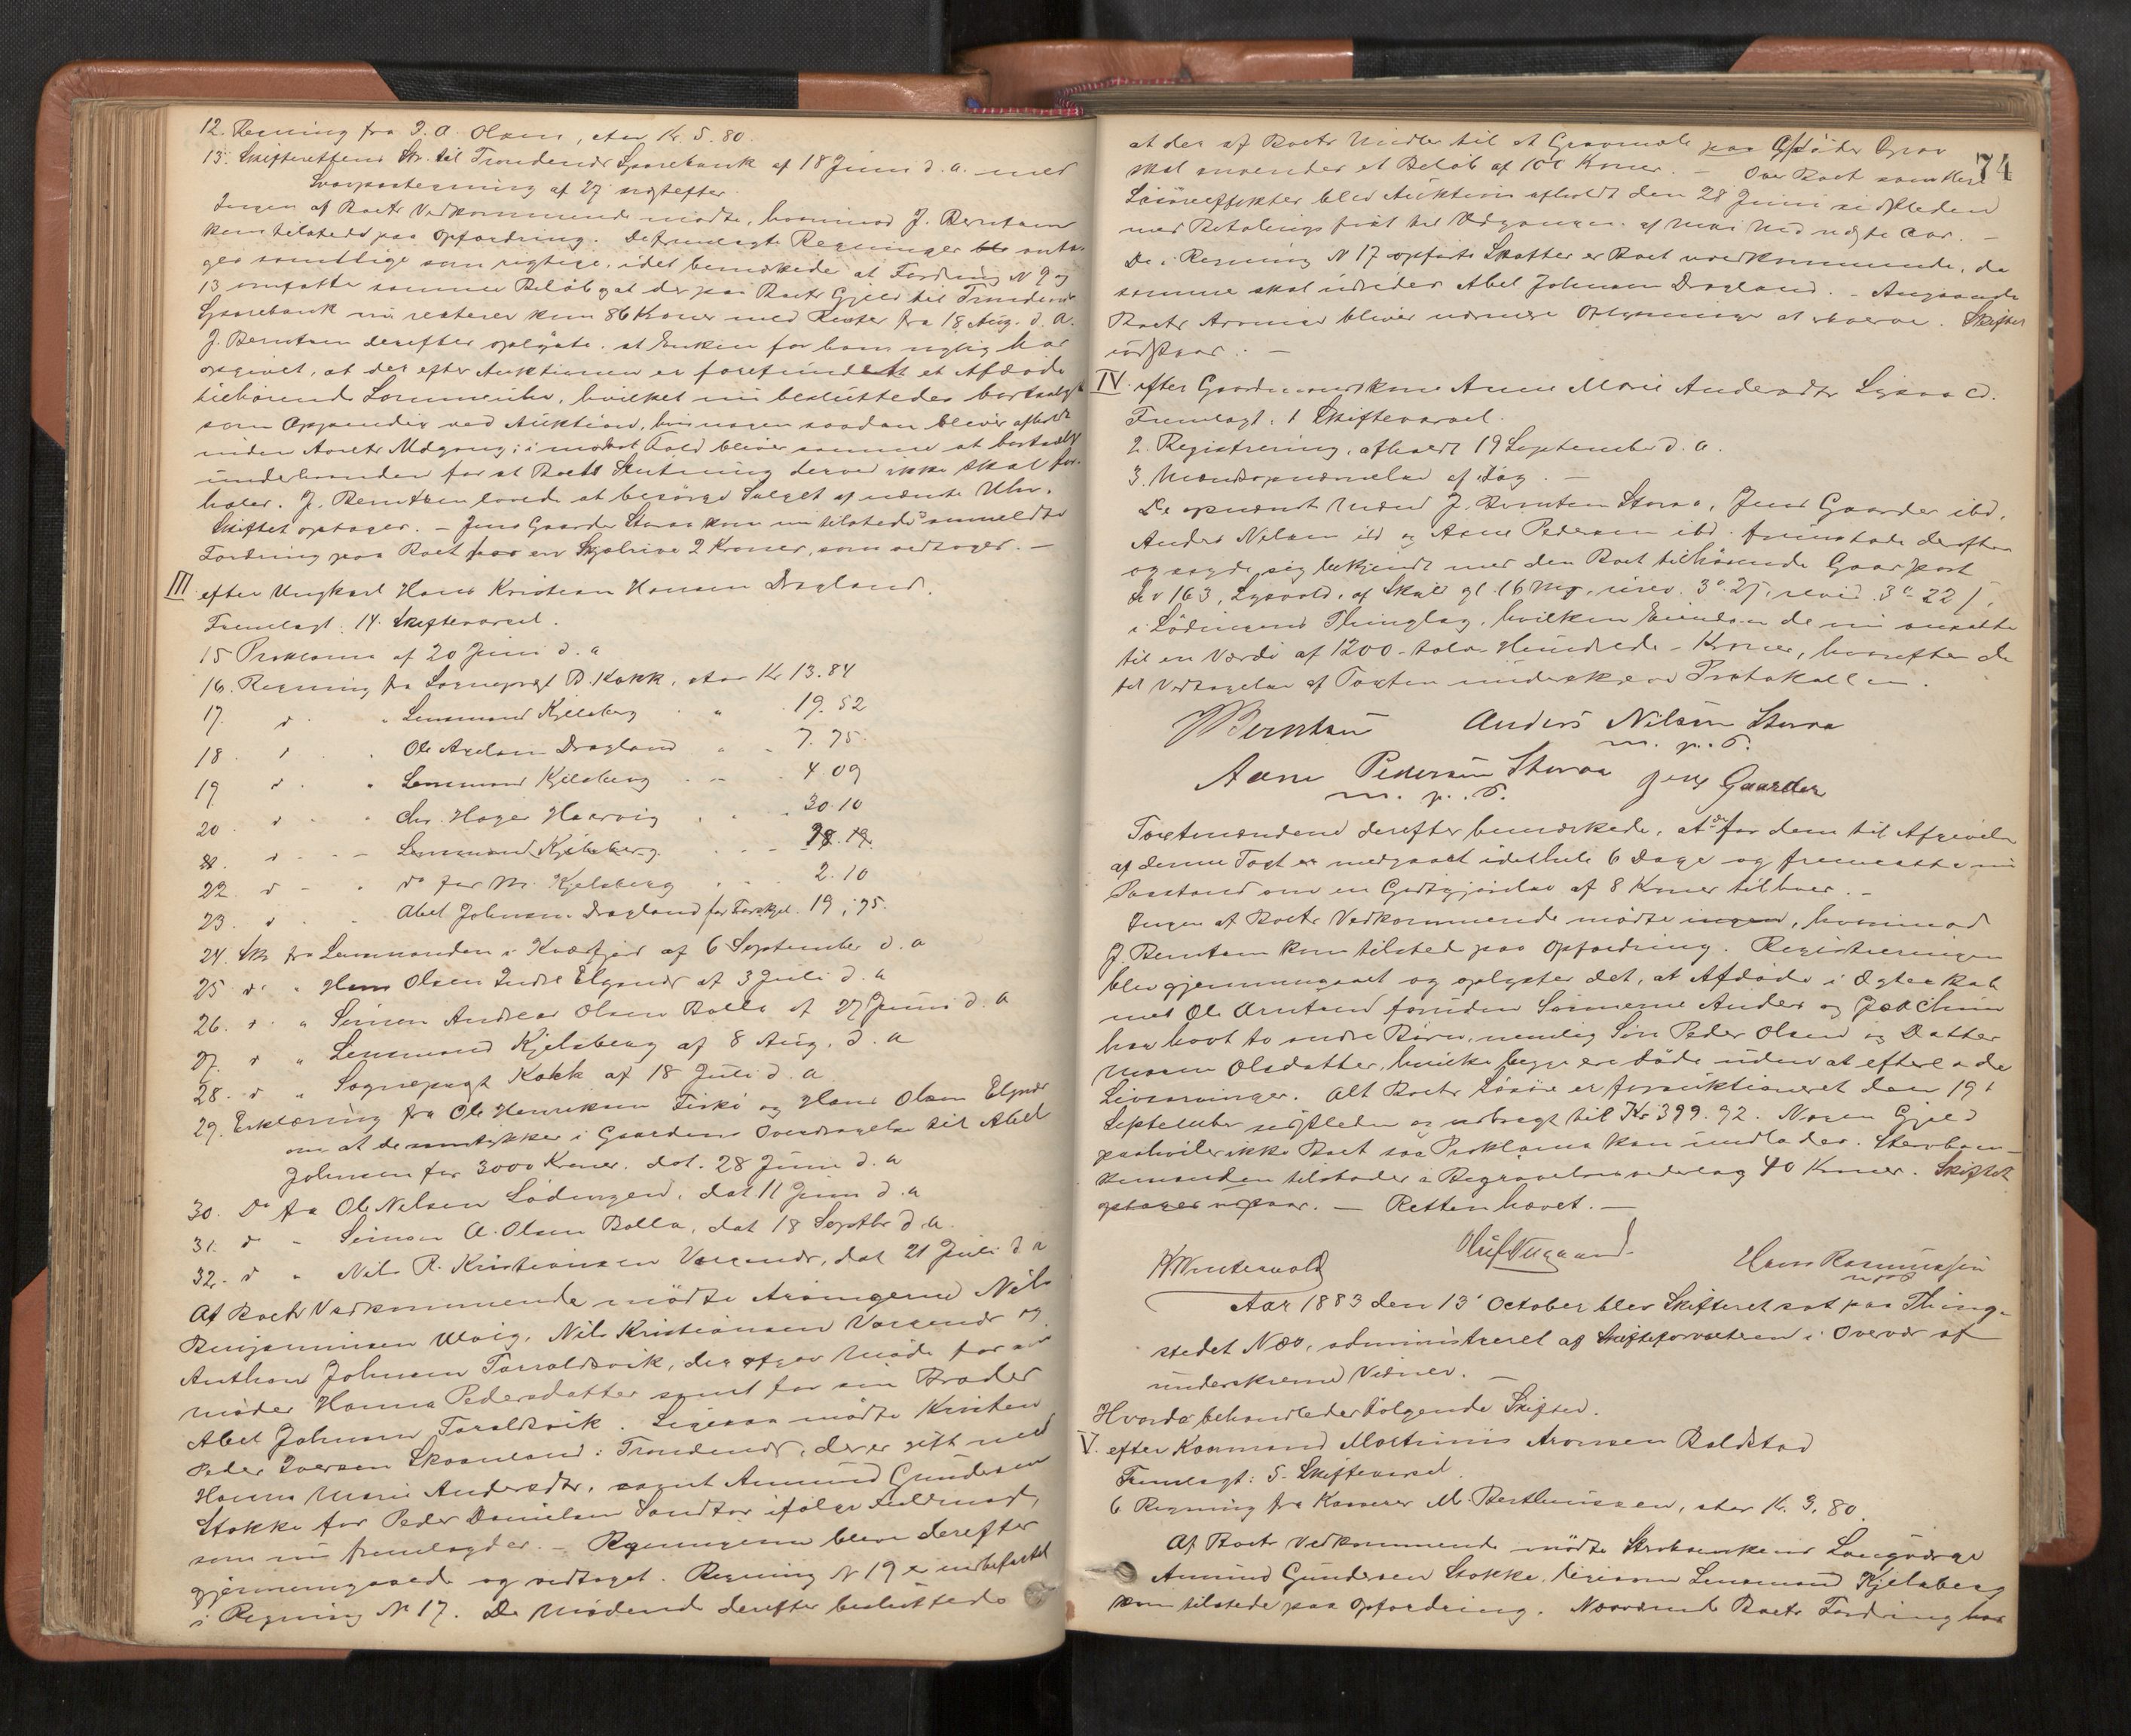 12. Regning fra J. A. Olsen, stor Kr. 5. 80.
13. Skifterettens Skr. til Trondenes Sparebank af 18 Juni d. a. med
Svarpaategning af 27 næstefter.
Ingen af Boets Vedkommende mødte, hvorimod J. Berntsen
kom tilstede paa Opfordring. De fremlagte Regninger blev antag-
ges samtlige som rigtige, idet bemærkedes at Fordring N 9 og
13 omfatter samme Beløb og at der paa Boets Gjeld til Trondenes
Sparebank nu resterer kun 86 Kroner med Renter fra 18 Aug. d. a.
J. Berntsen derefter oplyste, at Enken for ham nylig har
opgivet, at der efter Auktionen er forefundet et Afdøde
tilhørende Lommeuhr, hvilket nu besluttedes bortsolgt
som Oppender ved Auktion, hvis nogen saadan bliver afholdt
inden Aarets Udgang; i modsat Fald bliver samme at bortsælge
underhaanden for at Boets Slutning derved ikke skal for-
hales. J. Berntsen lovede at besørge Salget af nævnte Uhr.
Skiftet optages. – Jens Gaarder Storaa kom nu tilstede anmeldte
Fordring paa Boet for en 2 Kroner, som vedtoges. –
III efter Ungkarl Hans Kristian Hansen Dragland.
Fremlagt: 14. Skiftevarsel.
15 Proklama af 20 Juni d. a
16. Regning fra Sogneprest B. Kokk, stor Kr 13. 84
17. d " Lensmand Kjelsberg " 19. 52
18. d " Ole Axelsen Dragland " 7. 75
19 d " Lensmand Kjelsberg " 4 09
20. d " Chr. Hager Haarvig " 30. 10
21. d " Lensmand Kjelsberg
22. d " do for M. Kjelsberg " 2. 10
23. d " Abel Johnsen Dragland for 19, 75.
24. Skr fra Lensmanden i Kvæfjord af 6 September d. a
25 d " Hans Olsen Indre Elgsnes af 3 Juli d. a
26. d " Simon Andreas Olsen Bolla af 27 Juni d. a
27. d " Lensmand Kjelsberg af 8 Aug. d. a
28. d " Sogneprest Kokk af 18 Juli d. a
29. Erklæring fra Ole Henriksen Fiskø og Hans Olsen Elgsnes
om at de samtykker i Gaardens Overdragelse til Abel
Johnsen for 3000 Kroner. dat. 28 Juni d. a
30. Do fra Ole Nilsen Lødingen, dat 11 Juni d. a
31. d " Simon A. Olsen Bolla, dat 18 Septbr d. a.
32. d " Nils R. Kristiansen Voggenes, dat 21 Juli d a
Af Boets Vedkommende mødte Arvingerne Nils
Benjaminsen Ulvig, Nils Kristiansen Voggenes og
Anthon Johnsen Taraldsvik, der afgav Møde for sin
Moder Hanna Pedersdatter samt for sin Broder
Abel Johnsen Taraldsvik. Ligesaa mødte Kristen
Peder Iversen Skaanland i Trondenes, der er gift med
Hanna Marie Andersdtr, samt Anmund Gundersen
Stokke for Peder Danielsen Sandtor ifølge Fuldmagt,
som nu fremlagdes. – Regningerne blev derefter
gjennemgaaede og vedtaget. Regning N 19 er indbefattet
i Regning N 17. De Mødende derefter besluttede
74
at der af Boets Midler til et Gravmæle paa Afdødes Grav
skal anvendes et Beløb af 100 Kroner. – Over Boet samtlige
Løsøreeffekter blev Auktion afholdt den 28 Juni sidstleden
med Betalingsfrist til Udgangen af Mai Md næste Aar. –
De i Regning N 17 opførte Skatter er Boet uvedkommende, da
samme skal udredes Abel Johnsen Dragland. – Angaaende
Boets Arvinger bliver nærmere Oplysninger at erhverve. Skiftet
udstaar. –
IV. efter Gaardmandskone Anne Marie Andersdtr Lysvold.
Fremlagt: 1 Skiftevarsel.
2. Registrering, afholdt 19 September d. a.
3. Mændsopnævnelse af idag. –
De opnævnte Mænd J. Berntsen Storaa, Jens Gaarder ibd,
Anders Nilsen ibd og Aane Pedersen ibd. fremstode derefter
og sagde sig bekjendt med den Boet tilhørende Gaardpart
Lr N 163, Lysvold, af Skyld gl. 16 Mrk, urev. 3" 25, revid 3" 22 s,
i Lødingens Thinglag, hvilken Eiendom de nu ansatte
til en Værdi af 1200 – tolv Hundrede – Kroner, hvorefter de
til Vedtagelse af Taxten underskreve Protokollen.
JBerntsen Anders Nilsen Storaa
m. p. P.
Aane Pedersen Storaa Jens Gaarder
m. p. P.
Taxtmændene derefter bemærkede, at der for dem til Afgivelse
af denne Taxt er medgaaet idethele 6 Dage og fremsatte nu
Paastand om en Godtgjørelse af 8 Kroner til hver. –
Ingen af Boets Vedkommende mødte ingen, hvorimod
J. Berntsen kom tilstede paa Opfordring. Registreringen
blev gjennemgaaet og oplystes det, at Afdøde i Ægteskab
med Ole Arntsen foruden Sønnerne Anders og Joachim
har havt to andre Børn, nemlig Søn Peder Olsen og Datter
Maren Olsdatter, hvilke begge ere døde uden at efterlade
Livsarvinger. Alt Boets Løsøre er forauktioneret den 19
September sidstleden og udbragt til Kr 399. 92. Nogen Gjeld
paahviler ikke Boet saa Proklama kan undlades. Stervboen-
kemanden tilstodes i Begravelsesvederlag 40 Kroner. Skiftet
optages udstaar. – Retten hævet. –
WWintervold Hans Rasmussen
Aar 1883 den 13 October blev Skifteret sat paa Thing-
stedet Næs, administreret af Skifteforvalteren i Overvær af
underskrevne Vidner. –
Hvorda behandledes følgende Skifter.
V. efter Kaarmand Martinus Aronsen Boldstad
Fremlagt: 5. Skiftevarsel.
6 Regning fra Kasserer M. Berthinssen, stor Kr. 3, 80.
Af Boets Vedkommende mødte Laugværge
Anmund Gundersen Stokke, ligesom Lensmand Kjelsberg
kom tilstede paa Opfordring. Boets Fordring hos